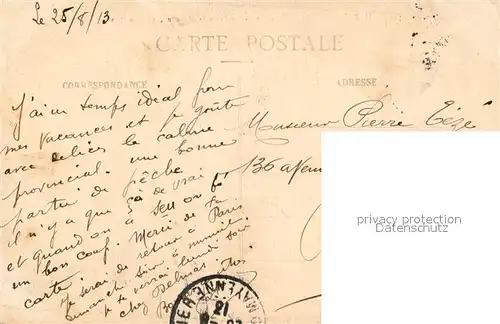 Le 25/8/13.
CARTE POSTALE
CORRESPONDANCE
ADRESSE
J'ai un temps idéal pour
mes vacances et je goûte
avec délices le calme
provincial. une bonne
partie de pêche
il n'y a que ça de vrai
et quand on a seu on f
un bon coup. Merci de ta
carte.
Je serai de retour à Paris
dimanche soir à minuit
je te verrai lundi soir
chez Delmas
Monsieur Pierre
136 aven
privacy protection
MAYENNE